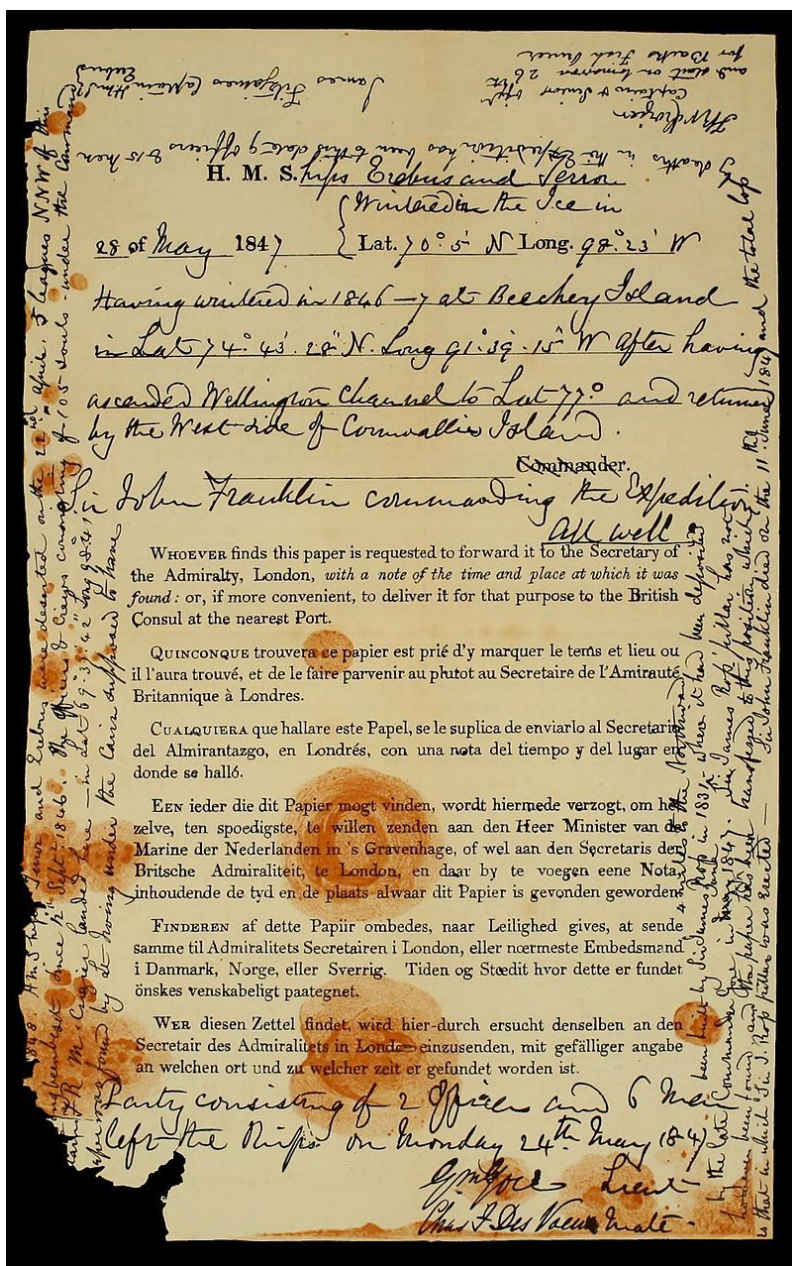 H. M. Ships Erebus and Terror
Wintered in the Ice in
28 of May 1847 Lat. 70°. 5' N Long. 98°. 23' W
Having wintered in 1846-7 at Beechey Island
in Lat 74°. 43'. 28" N. Long 91°. 39'. 15" W After having
ascended Wellington Channel to Lat 77° and returned
by the West side of Cornwallis Island.
Commander.
Sir John Franklin commanding the Expedition
All well
WHOEVER finds this paper is requested to forward it to the Secretary of
the Admiralty, London, with a note of the time and place at which it was
found: or, if more convenient, to deliver it for that purpose to the British
Consul at the nearest Port.
QUINCONQUE trouvera ce papier est prié d'y marquer le tems et lieu ou
il l'aura trouvé, et de le faire parvenir au plutot au Secretaire de l'Amirauté
Britannique à Londres.
CUALQUIERA que hallare este Papel, se le suplica de enviarlo al Secretario
del Almirantazgo, en Londrés, con una nota del tiempo y del lugar en
donde se halló.
EEN ieder die dit Papier mogt vinden, wordt hiermede verzogt, om het
zelve, ten spoedigste, te willen zenden aan den Heer Minister van de
Marine der Nederlanden in 's Gravenhage, of wel aan den Secretaris der
Britsche Admiraliteit, te London, en daar by te voegen eene Nota,
inhoudende de tyd en de plaats alwaar dit Papier is gevonden geworden
FINDEREN af dette Papiir ombedes, naar Leilighed gives, at sende
samme til Admiralitets Secretairen i London, eller nœrmeste Embedsmand
i Danmark, Norge, eller Sverrig. Tiden og Stœdit hvor dette er fundet
önskes venskabeligt paategnet.
WER diesen Zettel findet, wird hier-durch ersucht denselben an den
Secretair des Admiralitets in London einzusenden, mit gefälliger angabe
an welchen ort und zu welcher zeit er gefundet worden ist.
Party consisting of 2 Officers and 6 Men
left the Ships on Monday 24th May 1847
Gm Gore Lieut
Chas F Des Voeux Mate
1848. HMShips Terror and Erebus were deserted on the 22nd April. 5 leagues NNW of this
ing been beset since 12th Sept 1846. The Officers & Crews consisting of 105 souls - under the Command
Captain F R M Crozier landed here - in Lat 69°. 37'. 42" Long 98°. 41'
paper was found by Lt Irving under the Cairn supposed to have
been built by Sir James Ross in 1831 - where it had been deposited 4 miles to the Northward
by the late Commander Gore in May June 1847. Sir James Ross' pillar has not
however been found and the paper has been transferred to this position which
is that in which Sir J. Ross pillar was erected - Sir John Franklin died on the 11 June 1847 and the total loss
by deaths in the Expedition has been to this date 9 officers & 15 men
James Fitzjames Captain HMS Erebus
F R M Crozier
Captain & Senior Offr
and start on tomorrow 26th
for Backs Fish River